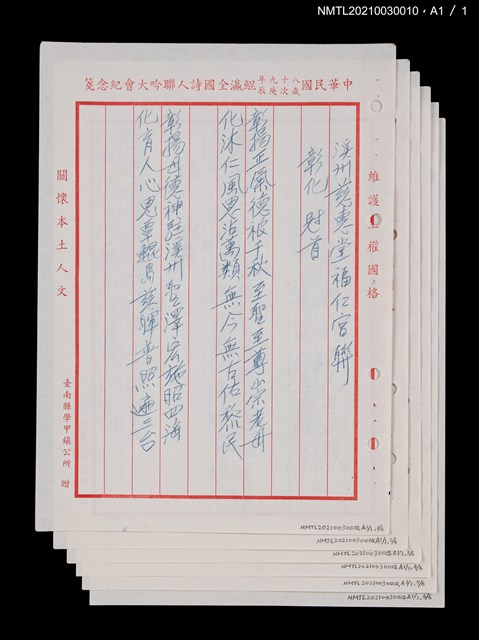 NMTL20210030010，A1／1
中華民國八十九年歲次庚辰鯤瀛全國詩人聯吟大會紀念箋
維護主權國格
溪州慈惠堂福仁宮聯
彰化 對首
彰揚正氣德被千秋至聖至尊崇老母
化沐仁風恩沾萬類無今無古佑黎民
彰揚母德神駐溪州聖澤宏施昭四海
化育人心恩覃鯤島慈暉普照遍三台
關懷本土人文
臺南縣學甲鎮公所 贈
NMTL20210030010,A1/1,1/6
NMTL20210030010,A1/1,2/6
NMTL20210030010,A1/1,3/6
NMTL20210030010,A1/1,4/6
NMTL20210030010,A1/1,5/6
NMTL20210030010,A1/1,6/6